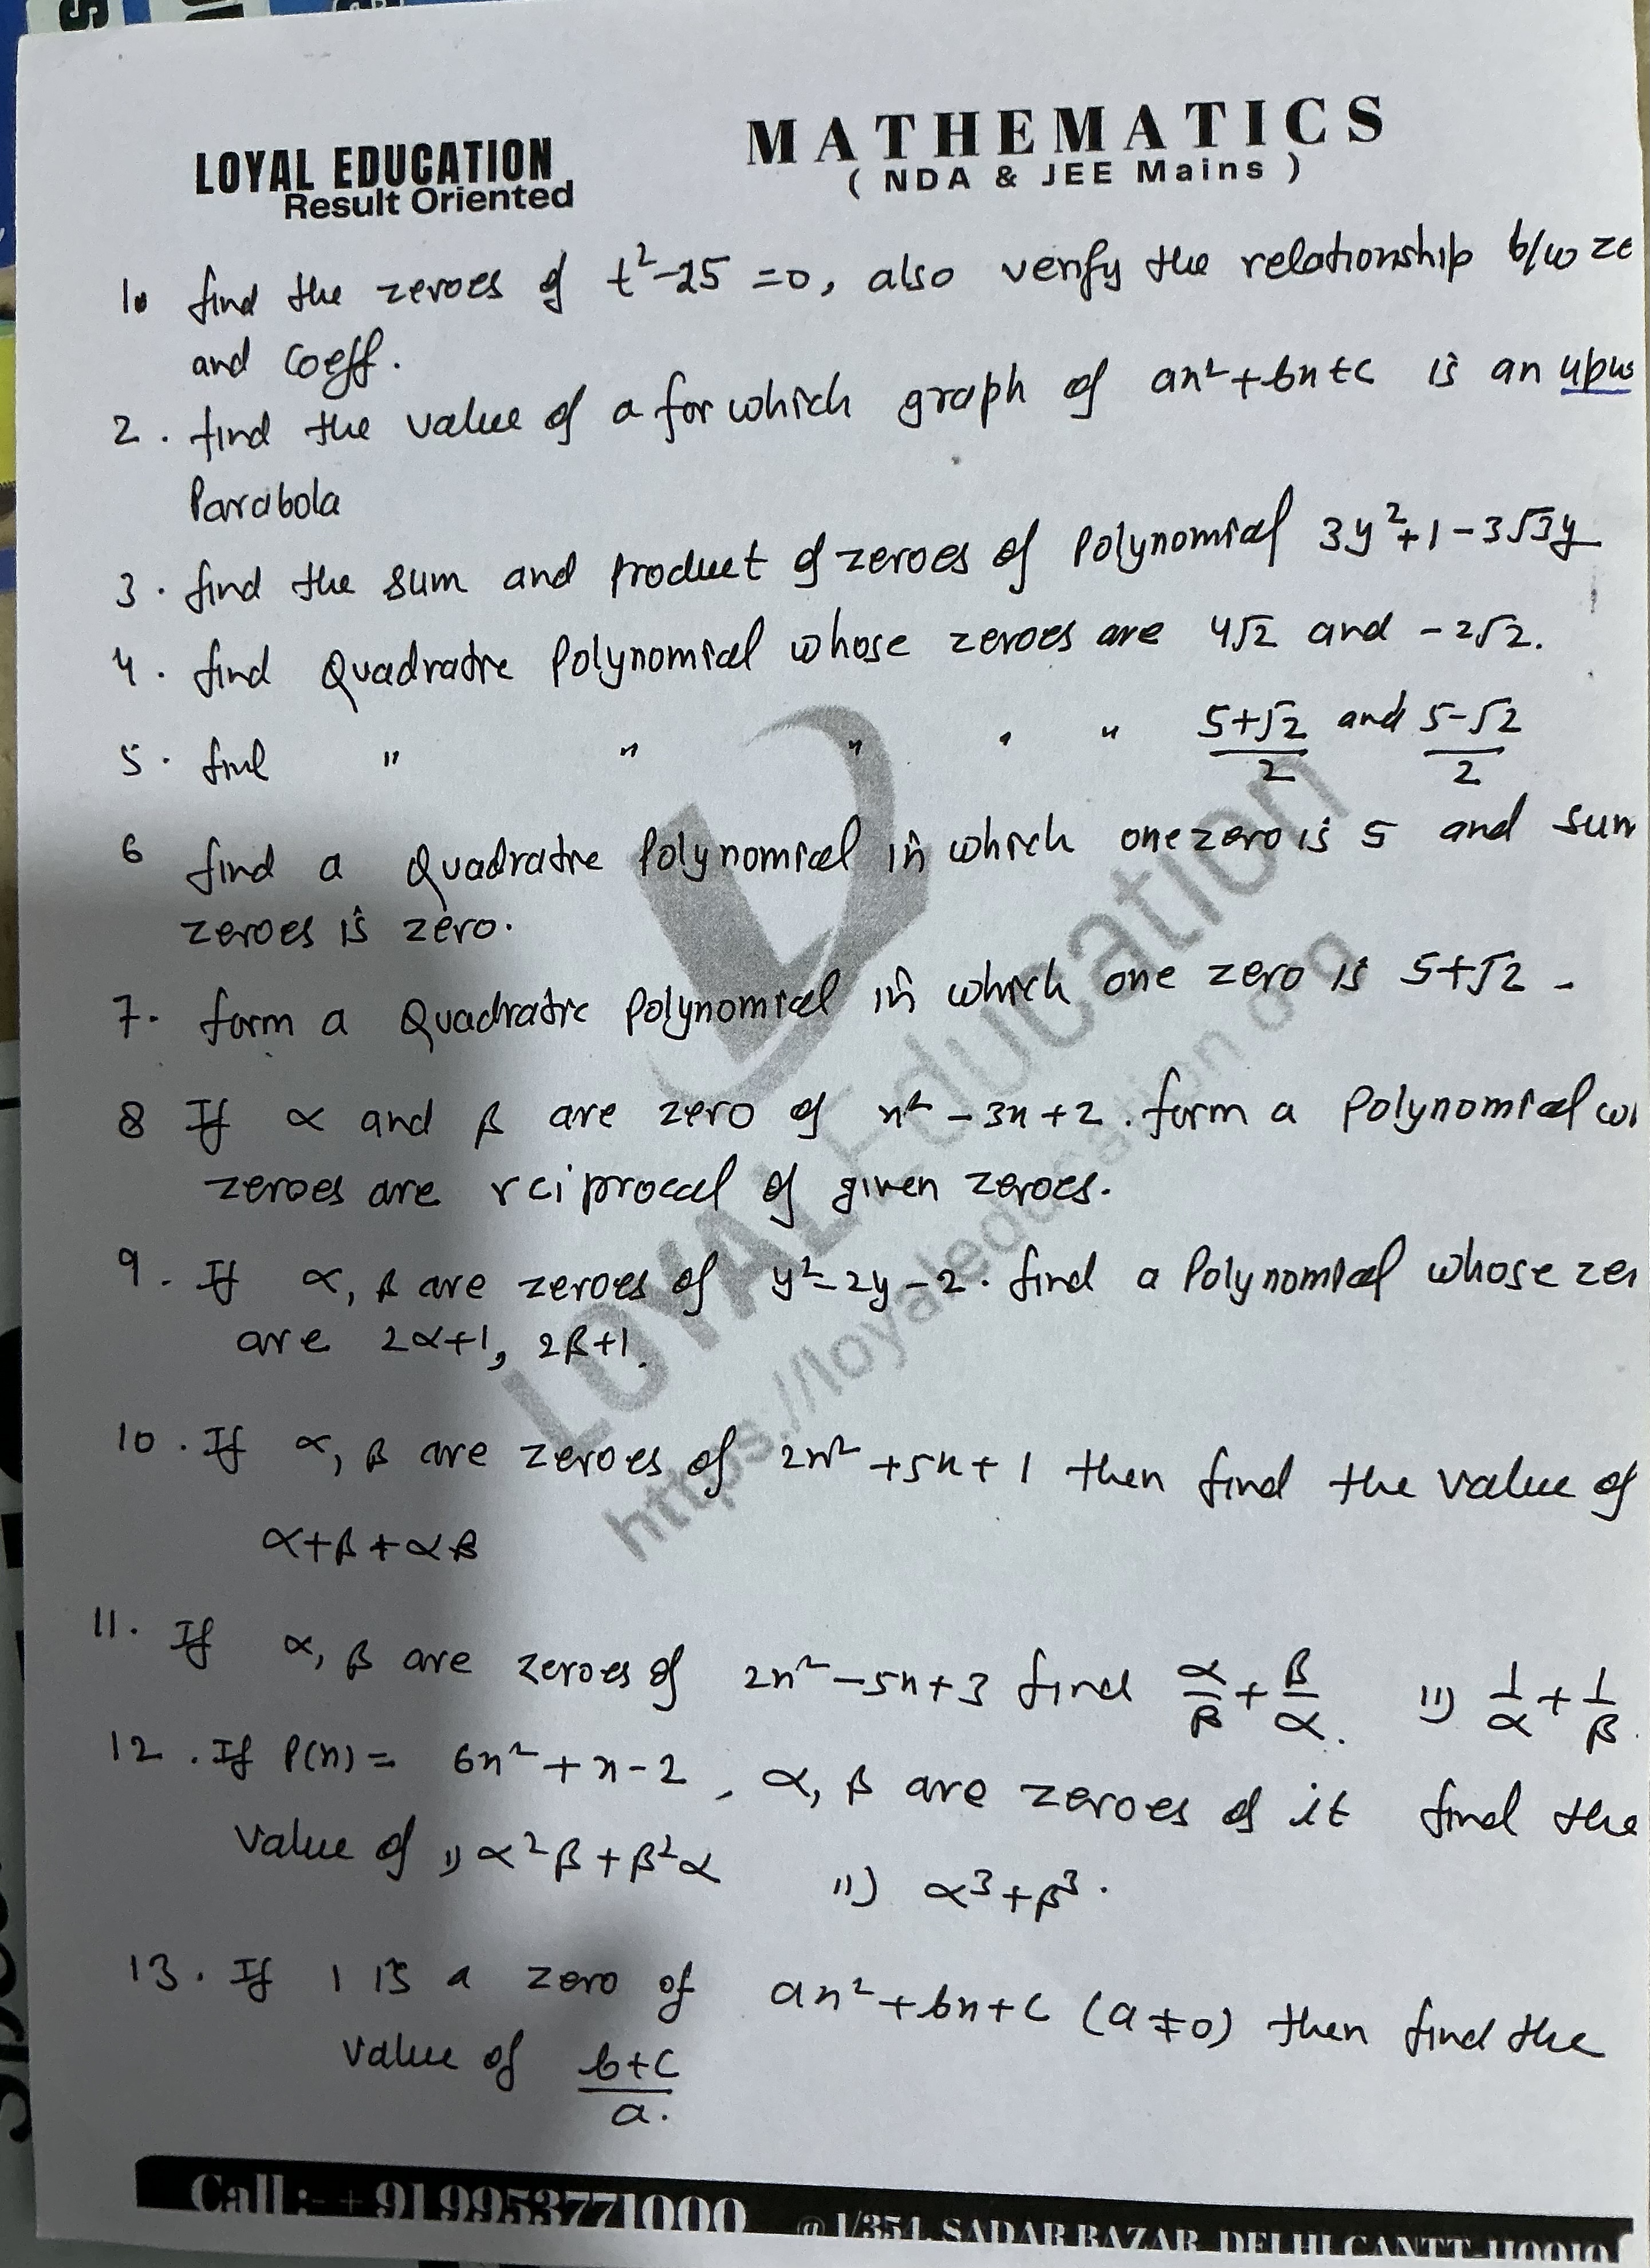 LOYAL EDUCATION
Result Oriented
MATHEMATICS
( NDA & JEE Mains )
1. find the zeroes of t²-25 =0, also verify the relationship b/w ze
and coeff.
2. find the value of a for which graph of ax²+bx+c is an upw
Parabola
3. find the sum and product of zeroes of Polynomial 3y²+1-3√3y
4. find Quadratic Polynomial whose zeroes are 4√2 and -2√2.
5. find " " " " " (5+√2)/2 and (5-√2)/2
6 find a Quadratic Polynomial in which one zero is 5 and sum
zeroes is zero.
7. form a Quadratic Polynomial in which one zero is 5+√2 -
8 If α and β are zero of x² - 3x + 2. form a Polynomial w
zeroes are rciprocal of given zeroes.
9. If α, β are zeroes of y²-2y-2. find a Polynomial whose ze
are 2α+1, 2β+1.
10. If α, β are zeroes of 2x² +5x+1 then find the value of
α+β+αβ
11. If α, β are zeroes of 2x²-5x+3 find α/β + β/α. ii) 1/α + 1/β.
12. If P(x) = 6x²+x-2, α, β are zeroes of it find the
value of i) α²β+β²α ii) α³+β³.
13. If 1 is a zero of ax²+bx+c (a≠0) then find the
value of (b+c)/a.
LOYALEducation
https://loyaleducation.org
Call :- +91 9953771000 @ 1/354, SADAR BAZAR, DELHI CANTT-110010